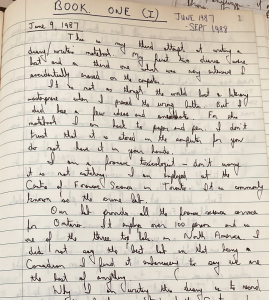 BOOK ONE (I)
JUNE 1987
- SEPT 1988
June 9, 1987
This is my third attempt at writing a
diary/writer's notebook. My first two diaries were
lost and a third one which was very interest I
accidentally erased on the computer.
It is not as though the world lost a literary
masterpiece when I pressed the wrong button. But I
did lose a few ideas and anecdotes. For this
notebook I am back to paper and pen. I don't
trust that it is stored in the computer for you
do not have it in your hands.
I am a forensic toxicologist - don't worry
it is not catching. I am employed at the
Centre of Forensic Science in Toronto. It is commonly
known as the crime lab.
Our lab provides all the forensic science services
for Ontario. It employs over 100 person and is
one of the three top labs in North America. I
did not say the best but in that being a
Canadian I find it unnecessary to say we are
the best at anything.
Why I am writing this diary is to record